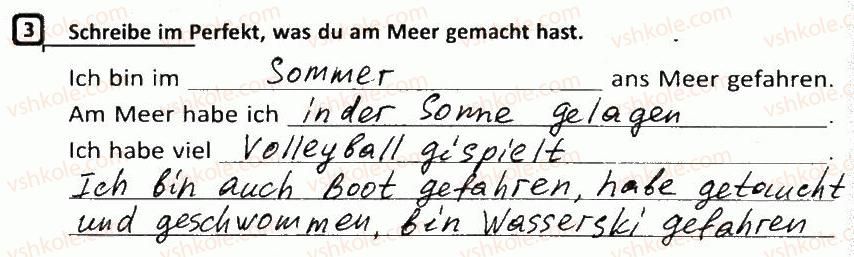 3 Schreibe im Perfekt, was du am Meer gemacht hast.
Ich bin im Sommer ans Meer gefahren.
Am Meer habe ich in der Sonne gelagen.
Ich habe viel Volleyball gispielt.
Ich bin auch Boot gefahren, habe getaucht
und geschwommen, bin Wasserski gefahren
vshkole.com